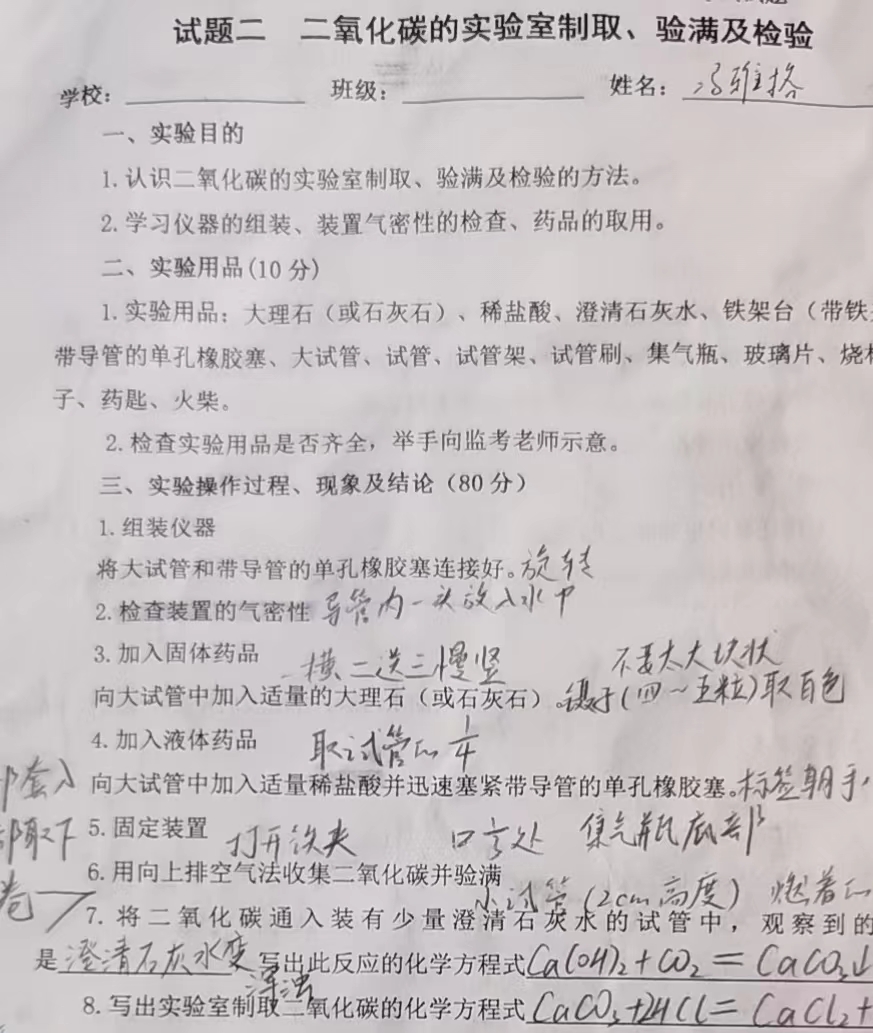 试题二 二氧化碳的实验室制取、验满及检验
学校： 班级： 姓名：冯雅格
一、实验目的
1.认识二氧化碳的实验室制取、验满及检验的方法。
2.学习仪器的组装、装置气密性的检查、药品的取用。
二、实验用品(10分)
1.实验用品：大理石（或石灰石）、稀盐酸、澄清石灰水、铁架台（带铁
带导管的单孔橡胶塞、大试管、试管、试管架、试管刷、集气瓶、玻璃片、烧
子、药匙、火柴。
2.检查实验用品是否齐全，举手向监考老师示意。
三、实验操作过程、现象及结论（80分）
1.组装仪器
将大试管和带导管的单孔橡胶塞连接好。旋转
2.检查装置的气密性 导管内一头放入水中
3.加入固体药品 一横二送三慢竖 不要太大块状
向大试管中加入适量的大理石（或石灰石）。镊子(四~五粒)取白色
4.加入液体药品 取试管的1/4
套入 向大试管中加入适量稀盐酸并迅速塞紧带导管的单孔橡胶塞。标签朝手
部取下 5.固定装置 打开铁夹 口言处 集气瓶底部
6.用向上排空气法收集二氧化碳并验满
小试管(2cm高度) 燃着的
7.将二氧化碳通入装有少量澄清石灰水的试管中，观察到的
是澄清石灰水变浑浊 写出此反应的化学方程式Ca(OH)₂+CO₂=CaCO₃↓
8.写出实验室制取二氧化碳的化学方程式CaCO₃+2HCl=CaCl₂+